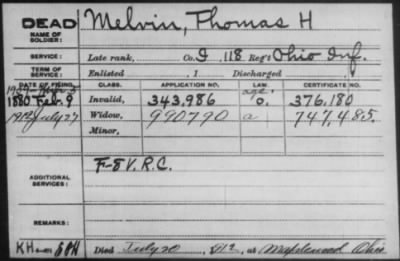 DEAD
NAME OF SOLDIER: Melvin, Thomas H
SERVICE: Late rank, Co. I, 118 Reg't Ohio Inf.
TERM OF SERVICE: Enlisted , 1 Discharged
DATE OF FILING. CLASS. APPLICATION NO. LAW. CERTIFICATE NO.
1907 3 age.
1880 Feb. 9 Invalid, 343,986 o. 376,180
1912 July 27 Widow, 990790 a 747,485.
Minor,
F-8 V.R.C.
ADDITIONAL SERVICES:
REMARKS:
KH Died July 20, 1912, at Maplewood Ohio